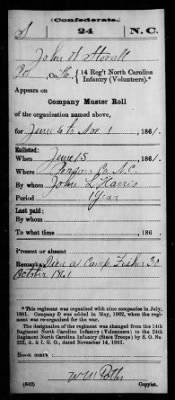 Confederate.
S 24 N.C.
John H Stovall
Co. , { 14 Reg't North Carolina
Infantry (Volunteers).*
Appears on
Company Muster Roll
of the organization named above,
for June 6 to Nov 1, 1861.
Enlisted:
When June 15, 186
Where Person Co N.C.
By whom John L Harris
Period 1 Year
Last paid:
By whom
To what time , 186
Present or absent
Remarks: Died at Camp Fisher 30
October 1861
*This regiment was organized with nine companies in July,
1861. Company D was added in May, 1862, when the regiment
was re-organized for the war.
The designation of the regiment was changed from the 14th
Regiment North Carolina Infantry (Volunteers) to the 24th
Regiment North Carolina Infantry (State Troops) by S. O. No.
222, A. & I. G. O., dated November 14, 1861.
Book mark:
(642) Copyist.